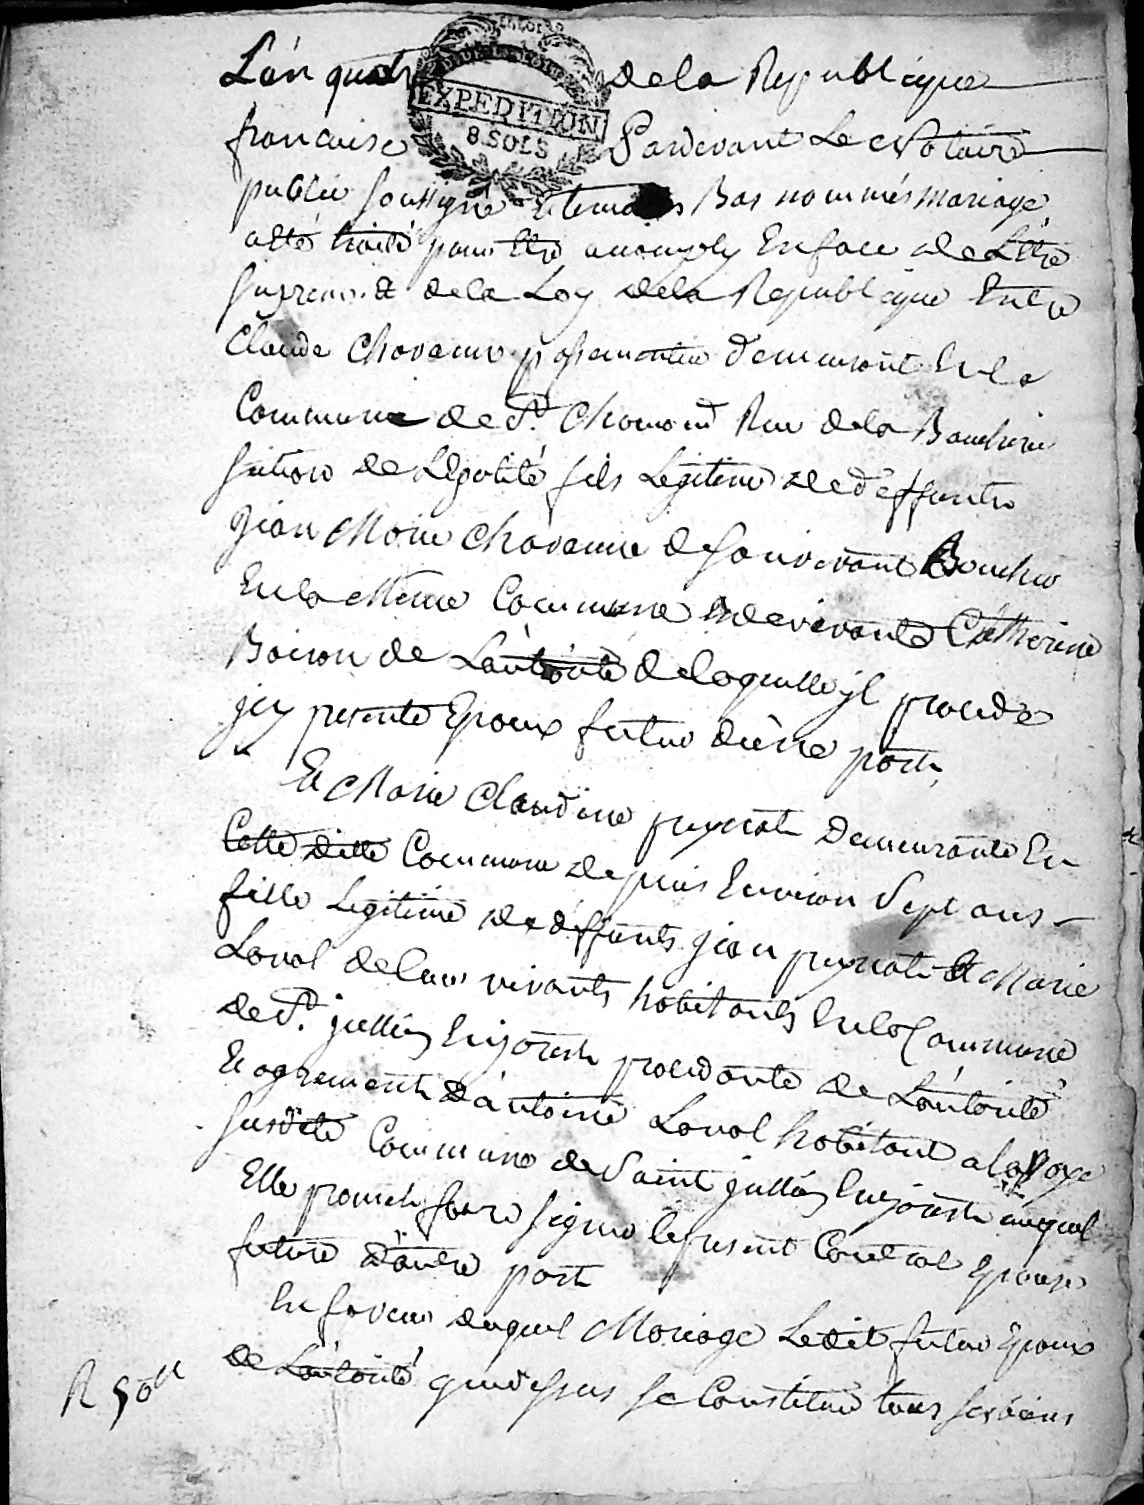 L'an quatr de la Republique
EXPEDITION
8 SOLS
francaise Pardevant Le Notaire
public soussigné Et temoins Bas nommés mariage
a été traité pour Etre accomply En face de L'Etre
supreme & de la Loy de la Republique Entre
Claude Chavanne passementier demeurant En la
Commune de St. Chamond Rue de la Boucherie
section de L'Egalité fils Legitime de deffunt
Jean Marie Chavanne de son vivant Boucher
En la Meme Commune & de vivante Catherine
Boiron de L'autorité de laquelle jl procede
jcy presente Epoux futur d'une part,
Et Marie Claudine peyrat Demeurante En
Cette ditte Commune depuis Environ Sept ans
fille Legitime de deffunts jean peyrat & Marie
Laval de leur vivants habitants En la Commune
de St. jullien En jarest procedante de L'autorité
Et agrement d'antoine Laval habitant a la
susdite Commune de Saint jullien En jarest auquel
Elle promet faire signer le present Contrat Epouse
future d'autre part
En faveur duquel Mariage Ledit futur Epoux
de L'autorité que dessus se Constitue tous ses biens
R 50